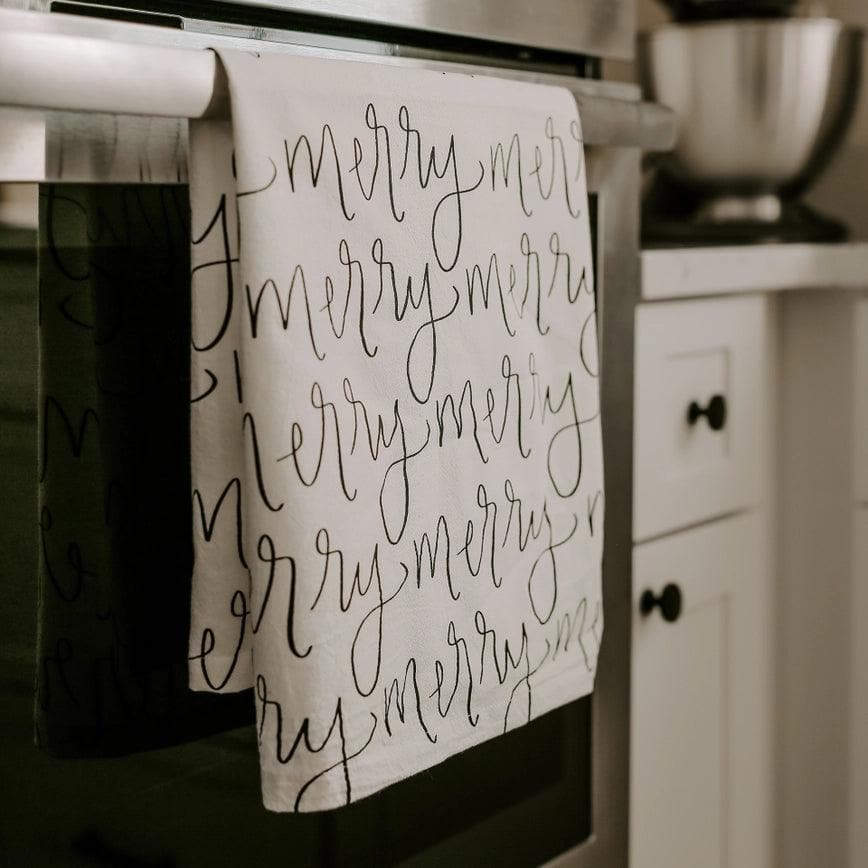 merry mer
merry merry
merry merry
erry merry
ry merry me